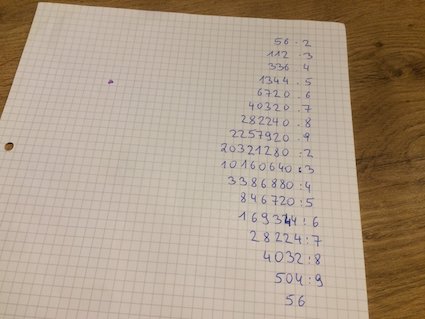 56 · 2
112 · 3
336 · 4
1344 · 5
6720 · 6
40320 · 7
282240 · 8
2257920 · 9
20321280 : 2
10160640 : 3
3386880 : 4
846720 : 5
169344 : 6
28224 : 7
4032 : 8
504 : 9
56